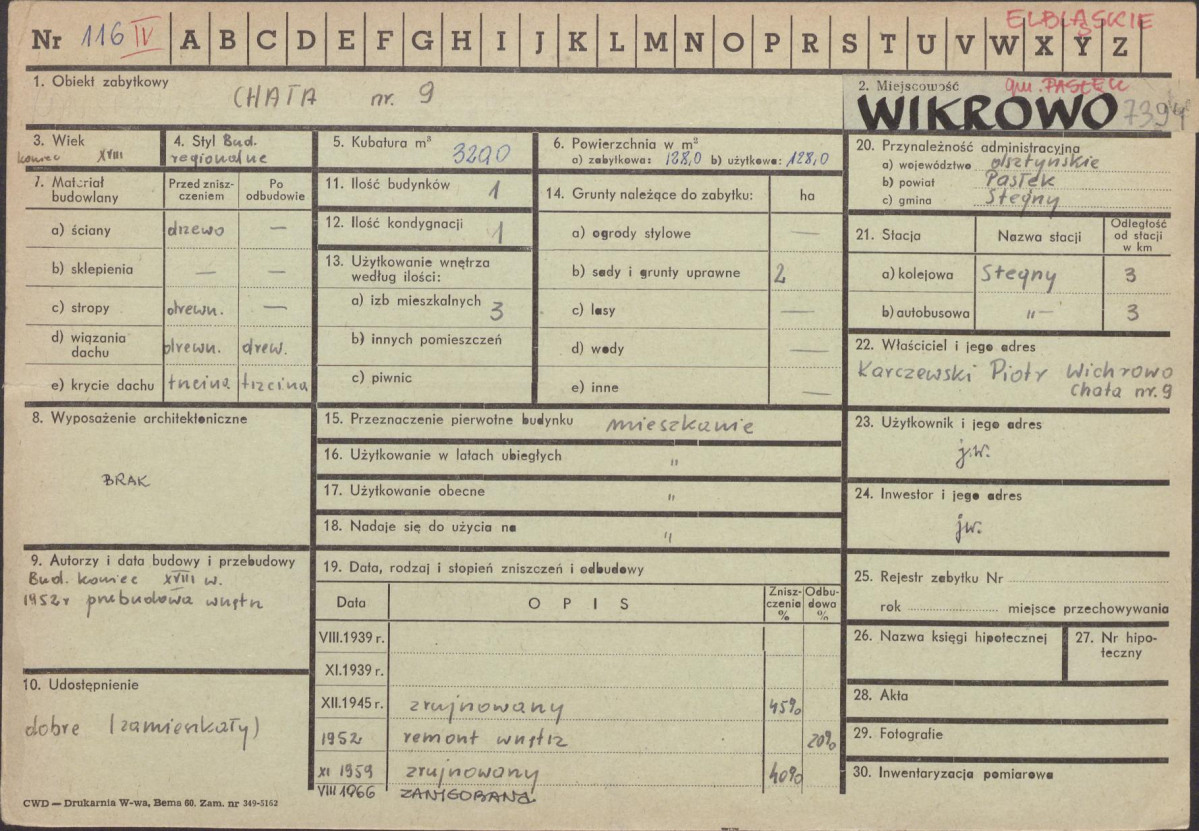 ELBLĄSKIE
Nr 116 IV A B C D E F G H I J K L M N O P R S T U V W X Y Z
1. Obiekt zabytkowy
CHATA nr. 9
2. Miejscowość gm. PASŁĘK
WIKROWO 7394
3. Wiek
koniec XVIII
4. Styl Bud.
regionalne
5. Kubatura m³
3290
6. Powierzchnia w m²
a) zabytkowa: 128,0 b) użytkowa: 128,0
7. Materiał budowlany
Przed zniszczeniem
Po odbudowie
a) ściany drzewo —
b) sklepienia — —
c) stropy drewn. —
d) wiązania dachu drewn. drew.
e) krycie dachu trzcina trzcina
8. Wyposażenie architektoniczne
BRAK
9. Autorzy i data budowy i przebudowy
Bud. koniec XVIII w.
1952r przebudowa wnętrz
10. Udostępnienie
dobre (zamieszkały)
11. Ilość budynków 1
12. Ilość kondygnacji 1
13. Użytkowanie wnętrza
według ilości:
a) izb mieszkalnych 3
b) innych pomieszczeń
c) piwnic
14. Grunty należące do zabytku: ha
a) ogrody stylowe —
b) sady i grunty uprawne 2
c) lasy —
d) wody —
e) inne —
15. Przeznaczenie pierwotne budynku mieszkanie
16. Użytkowanie w latach ubiegłych "
17. Użytkowanie obecne "
18. Nadaje się do użycia na "
19. Data, rodzaj i stopień zniszczeń i odbudowy
Data OPIS Zniszczenia % Odbudowa %
VIII.1939 r.
XI.1939 r.
XII.1945 r. zrujnowany 45%
1952 remont wnętrz 20%
XI 1959 zrujnowany 40%
VIII 1966
20. Przynależność administracyjna
a) województwo olsztyńskie
b) powiat Pasłęk
c) gmina Stegny
21. Stacja Nazwa stacji Odległość od stacji w km
a) kolejowa Stegny 3
b) autobusowa "— 3
22. Właściciel i jego adres
Karczewski Piotr Wichrowo
chata nr. 9
23. Użytkownik i jego adres
j.w.
24. Inwestor i jego adres
jw.
25. Rejestr zabytku Nr
rok miejsce przechowywania
26. Nazwa księgi hipotecznej
27. Nr hipoteczny
28. Akta
29. Fotografie
30. Inwentaryzacja pomiarowa
CWD — Drukarnia W-wa, Bema 60. Zam. nr 349-5162